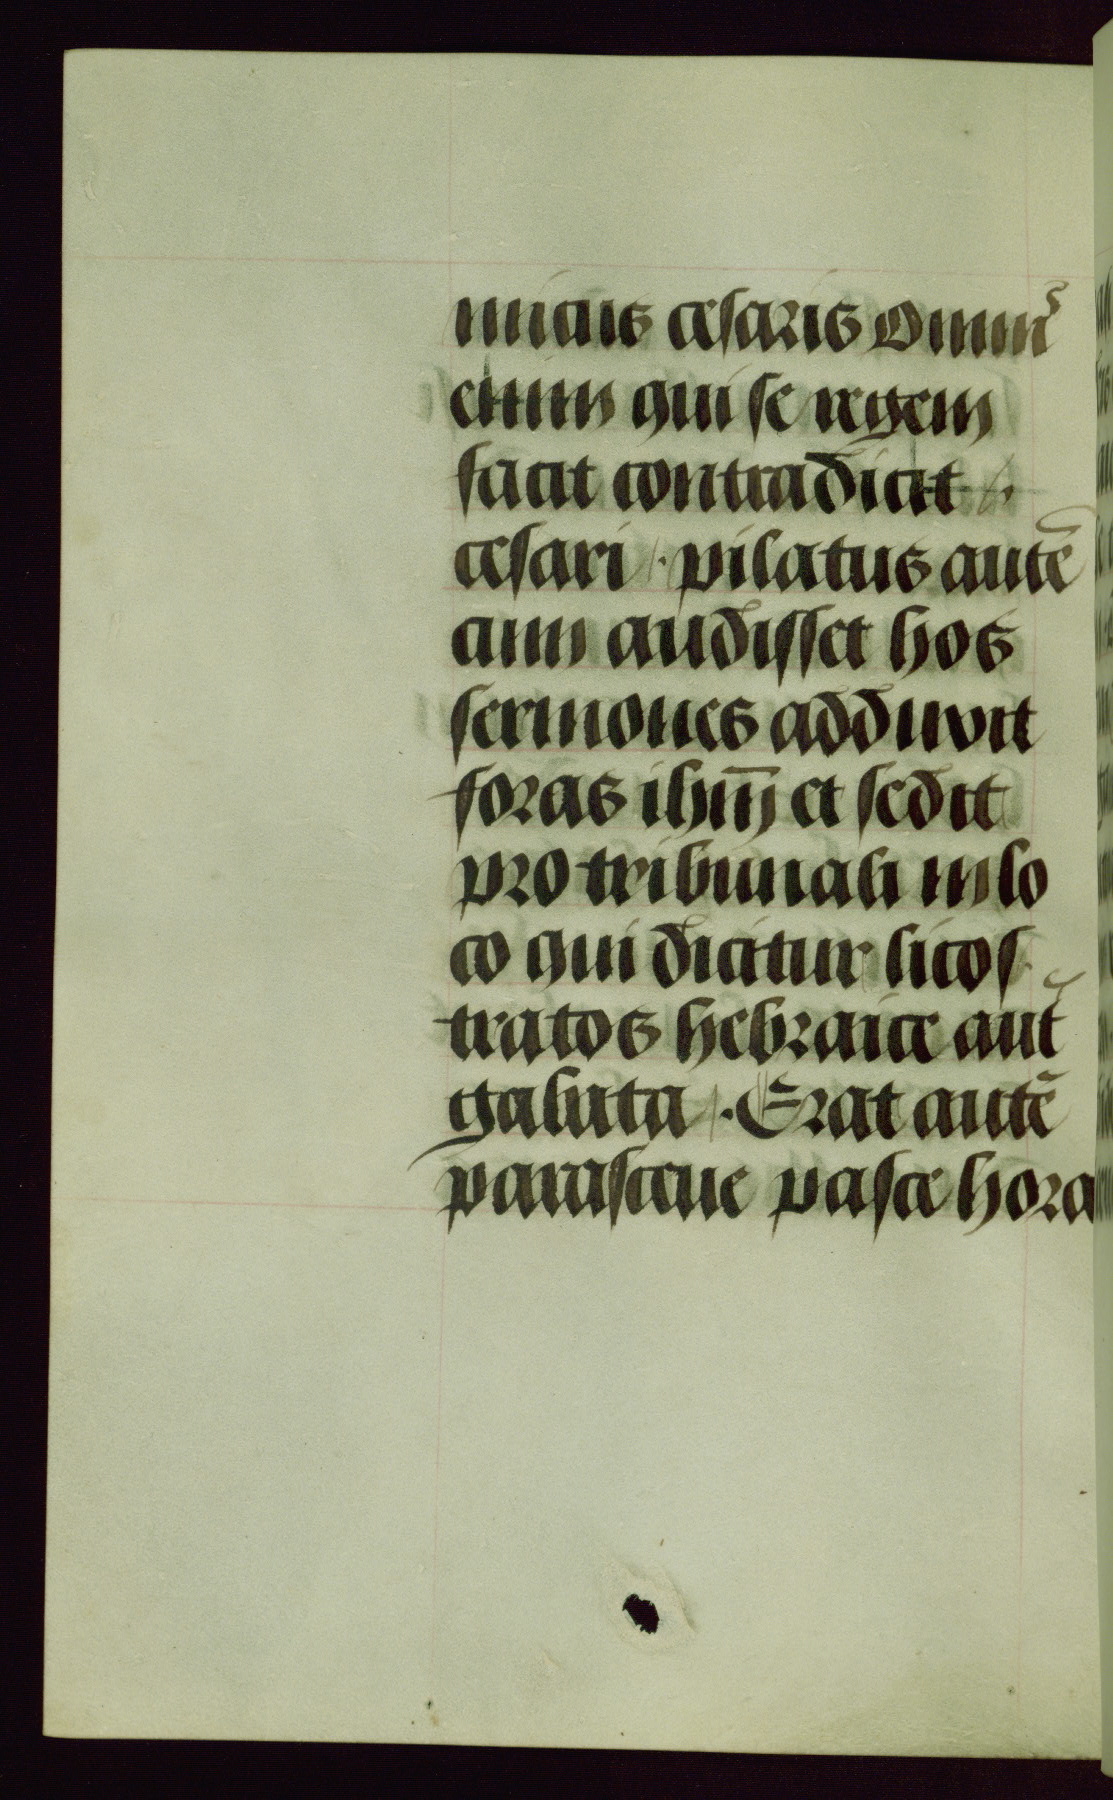 micus cesaris Omnis
enim qui se regem
facit contradicit
cesari. pilatus autē
cum audisset hos
sermones adduxit
foras ihm̄ et sedit
pro tribunali in lo
co qui dicitur licos
tratos hebraice aut̄
gabata. Erat autē
parasceue pasce hora